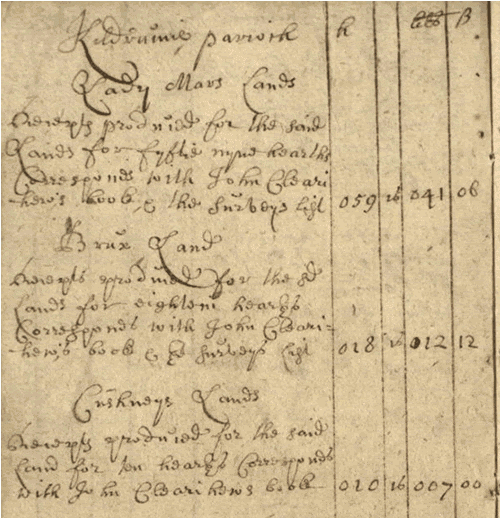 Kildrumie parioch h lib ß
Lady Mars Lands
Receipts produced for the said
Lands for fyftie nyne hearths
Corresponds with John Cleari
hews book & the surveys list 059 is 041 06
Brux Land
Receipts produced for the sd
Lands for eighteni hearths
Corresponds with John Cleari=
hews book & the surveys list 018 is 012 12
Cushneys Lands
Receipts produced for the said
Land for ten hearths Corresponds
with John Clearihews book 010 is 007 00